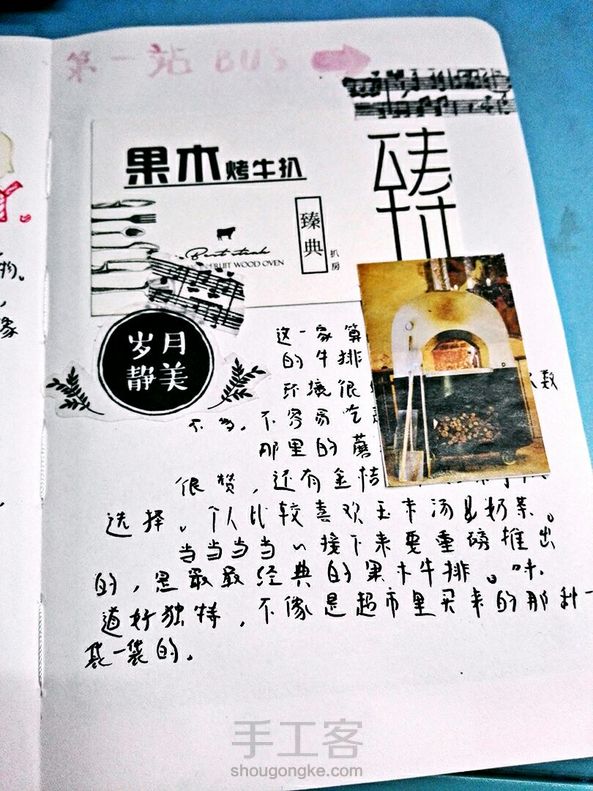 第一站 BUS
果木烤牛扒
臻
臻典
扒房
Best steak
FRUIT WOOD OVEN
岁月
静美
物。
这一家算
的牛排
环境很
数
不多,不容易吃
那里的蘑
很赞,还有金桔
选择。个人比较喜欢玉米汤&奶茶。
当当当当~接下来要重磅推出
的,是最最经典的果木牛排。味
道好独特,不像是超市里买来的那种一
袋一袋的。
手工客
shougongke.com